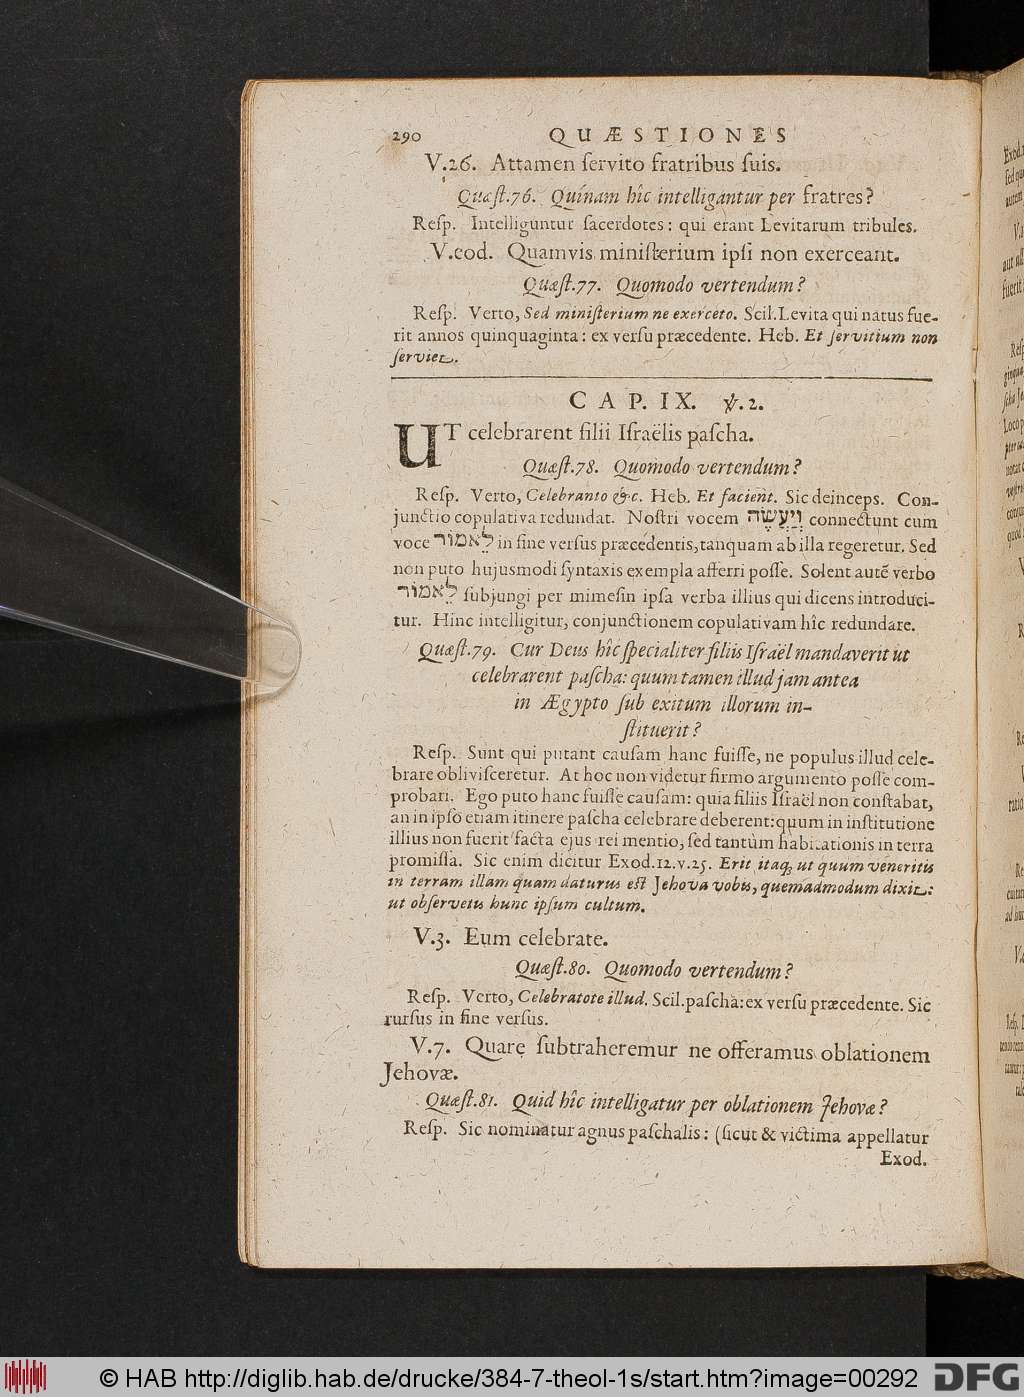 290 QUÆSTIONES
V.26. Attamen ſervito fratribus ſuis.
Quæſt.76. Quínam hîc intelligantur per fratres?
Reſp. Intelliguntur ſacerdotes: qui erant Levitarum tribules.
V.eod. Quamvis miniſterium ipſi non exerceant.
Quæſt.77. Quomodo vertendum?
Reſp. Verto, Sed miniſterium ne exerceto. Scil. Levita qui natus fue-
rit annos quinquaginta: ex verſu præcedente. Heb. Et ſervitium non
ſerviet.
CAP. IX. ℣.2.
UT celebrarent filii Iſraëlis paſcha.
Quæſt.78. Quomodo vertendum?
Reſp. Verto, Celebranto &c. Heb. Et facient. Sic deinceps. Con-
junctio copulativa redundat. Noſtri vocem וְיַעֲשׂוּ connectunt cum
voce לֵאמוֹר in fine verſus præcedentis, tanquam ab illa regeretur. Sed
non puto hujusmodi ſyntaxis exempla afferri poſſe. Solent autē verbo
לֵאמוֹר ſubjungi per mimeſin ipſa verba illius qui dicens introduci-
tur. Hinc intelligitur, conjunctionem copulativam hîc redundare.
Quæſt.79. Cur Deus hîc ſpecialiter filiis Iſraël mandaverit ut
celebrarent paſcha: quum tamen illud jam antea
in Ægypto ſub exitum illorum in-
ſtituerit?
Reſp. Sunt qui putant cauſam hanc fuiſſe, ne populus illud cele-
brare obliviſceretur. At hoc non videtur firmo argumento poſſe com-
probari. Ego puto hanc fuiſſe cauſam: quia filiis Iſraël non conſtabat,
an in ipſo etiam itinere paſcha celebrare deberent: quum in inſtitutione
illius non fuerit facta ejus rei mentio, ſed tantùm habitationis in terra
promiſſa. Sic enim dicitur Exod.12.v.25. Erit itaq; ut quum veneritis
in terram illam quam daturus eſt Jehova vobis, quemadmodum dixit:
ut obſervetis hunc ipſum cultum.
V.3. Eum celebrate.
Quæſt.80. Quomodo vertendum?
Reſp. Verto, Celebratote illud. Scil. paſcha: ex verſu præcedente. Sic
rurſus in fine verſus.
V.7. Quare ſubtraheremur ne offeramus oblationem
Jehovæ.
Quæſt.81. Quid hîc intelligatur per oblationem Jehovæ?
Reſp. Sic nominatur agnus paſchalis: (ſicut & victima appellatur
Exod.
© HAB http://diglib.hab.de/drucke/384-7-theol-1s/start.htm?image=00292
DFG